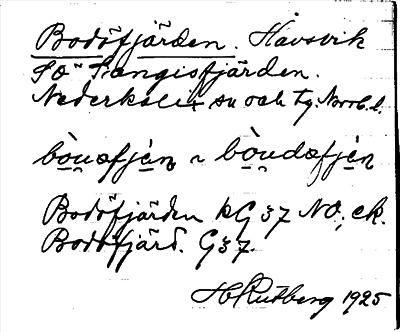 Bodöfjärden. Havsvik
SO Sangisfjärden.
Nederkalix sn och tg. Norrb. l.
bòu̯afjæ̀n ~ bòu̯dafjæ̀n
Bodöfjärden kG 37 NO; ek.
Bodöfjärd. G37.
H Rutberg 1925